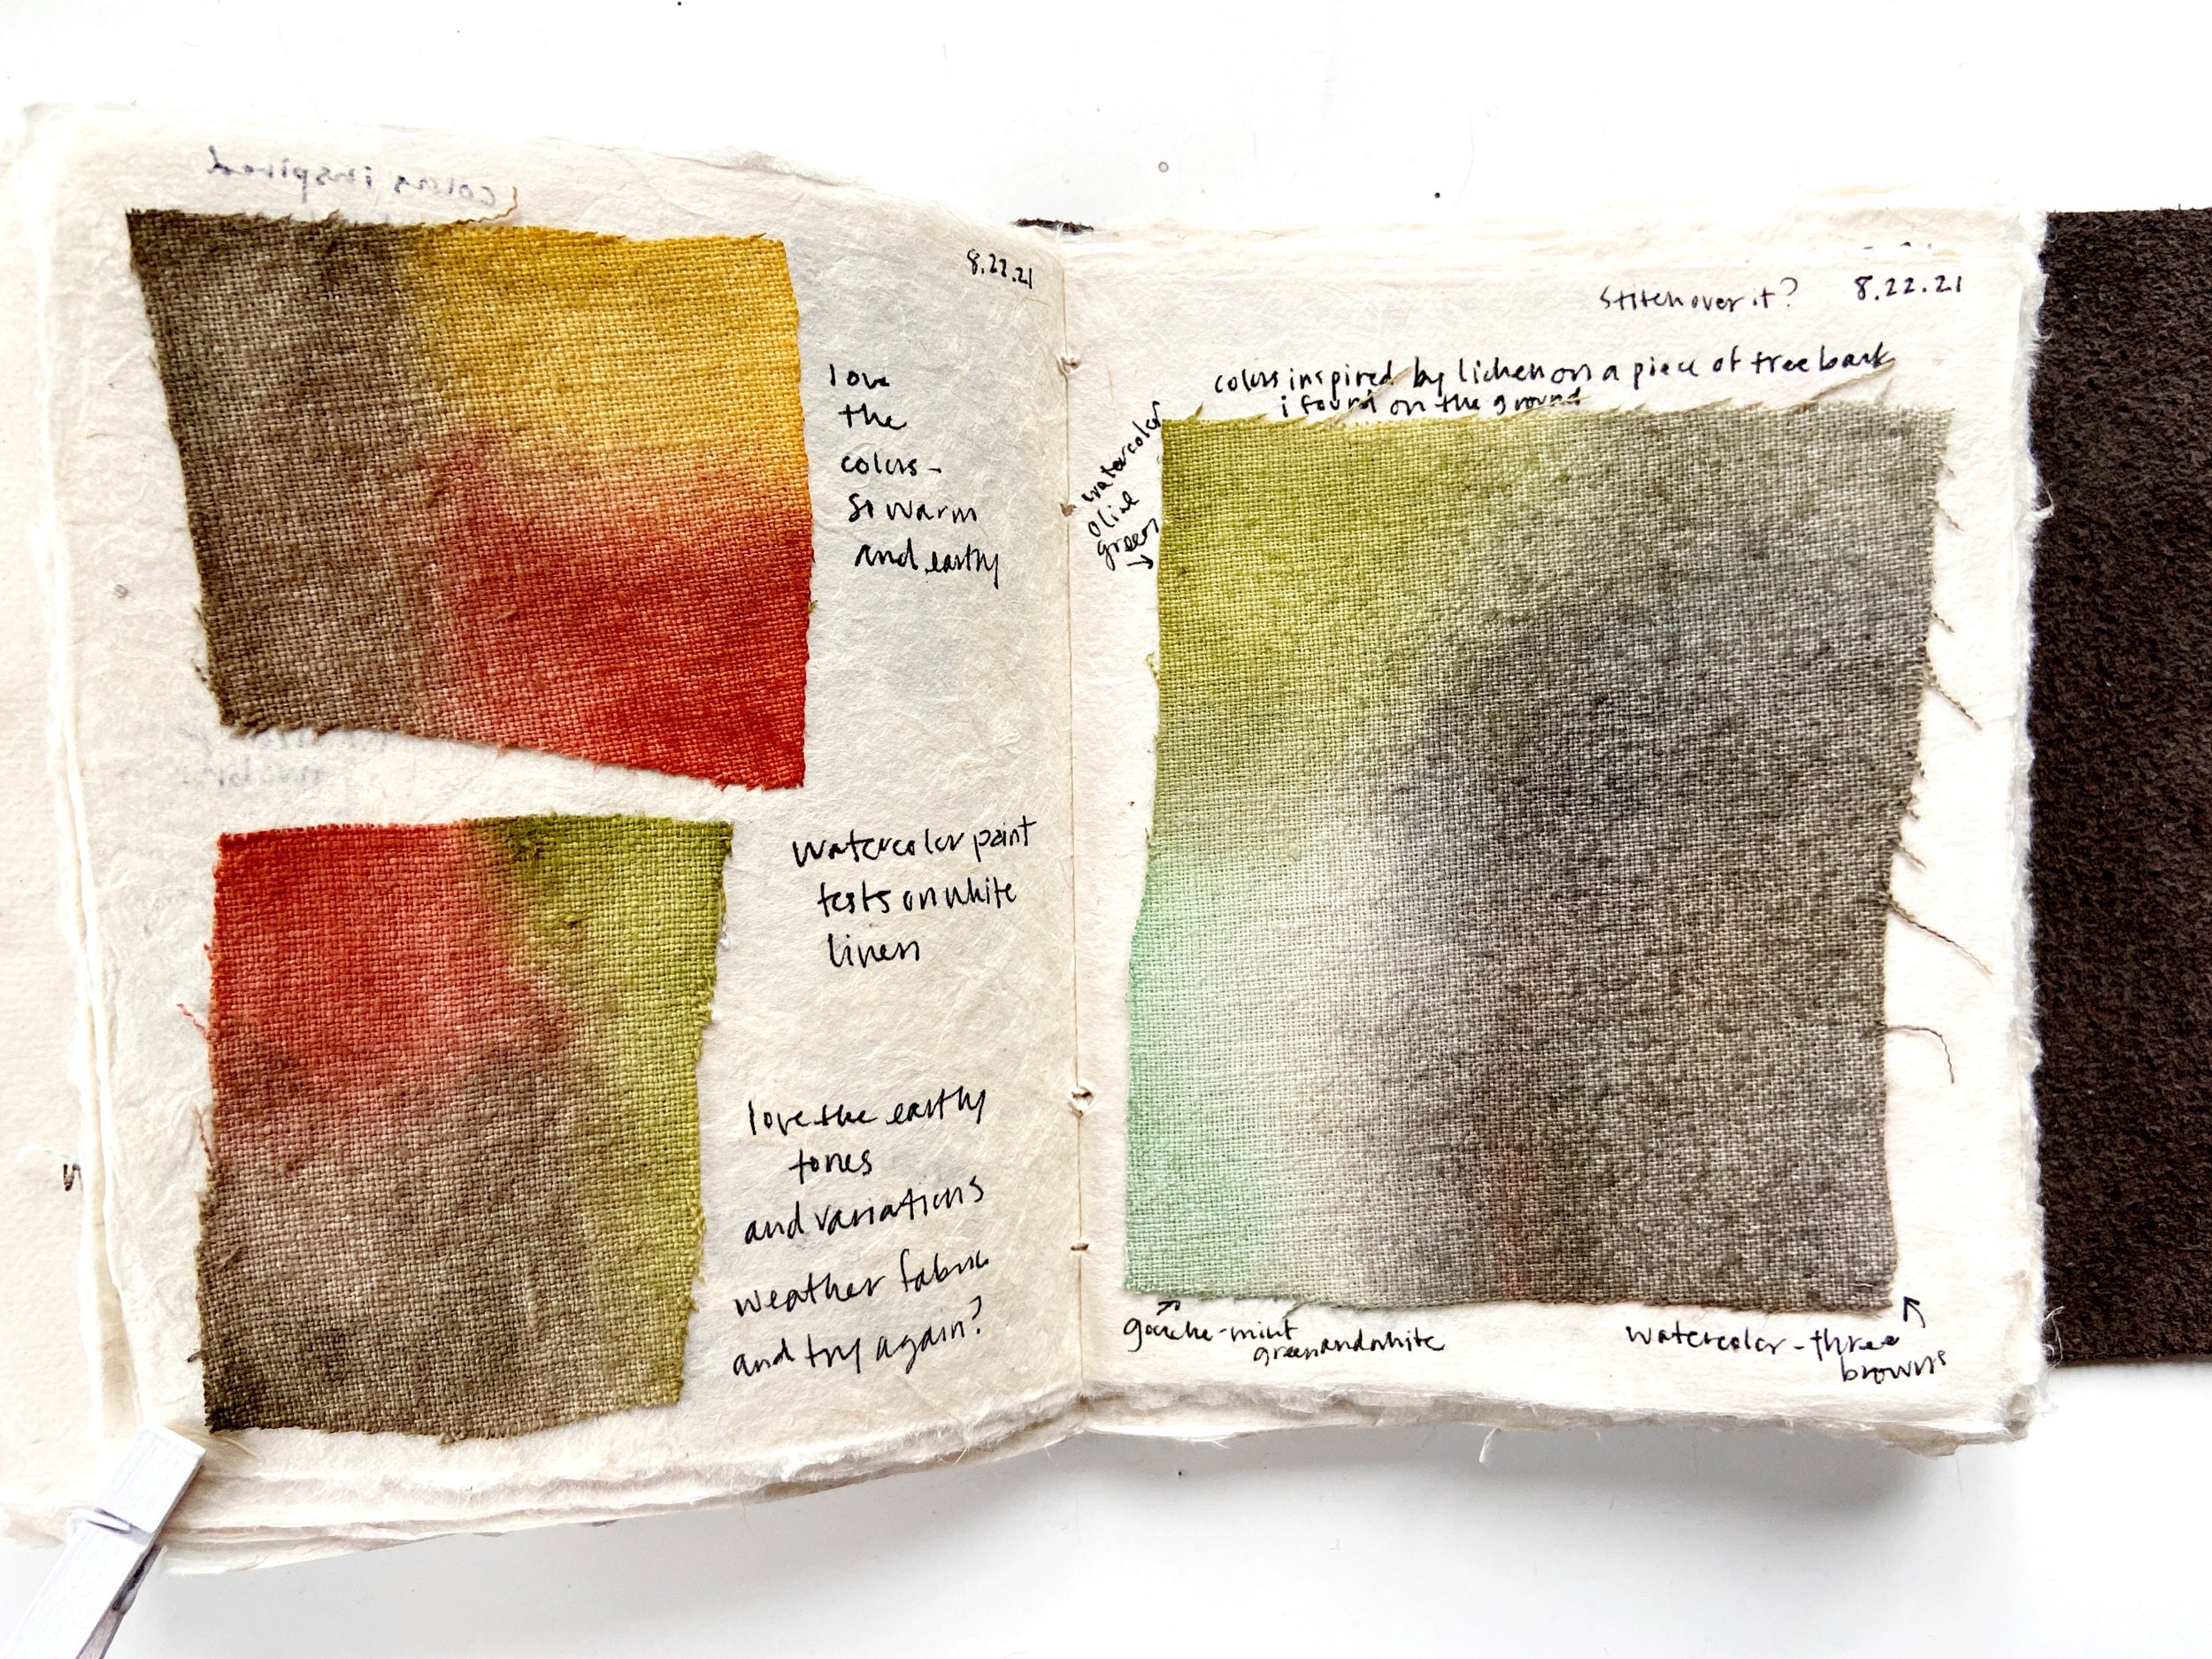 8.22.21
love
the
colors-
so warm
and earthy
watercolor paint
tests on white
linen
love the earthy
tones
and variations
weather fabric
and try again?
stitch over it? 8.22.21
colors inspired by lichen on a piece of tree bark
i found on the ground
watercolor
olive
green
gouche-mint
green and white
watercolor-three
browns